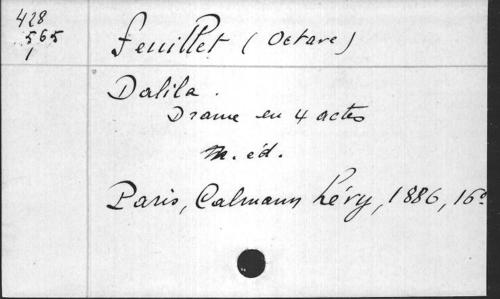 428
565
1
Feuillet (Octave)
Dalila.
Drame en 4 actes
N. éd.
Paris, Calmann Lévy, 1886, 16º